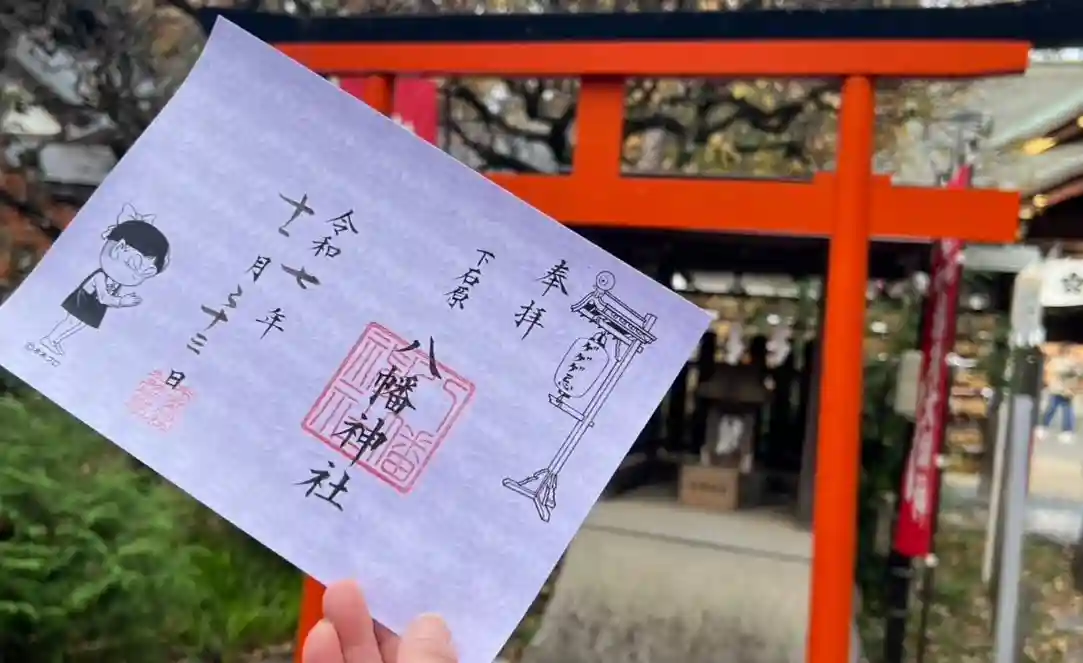 奉拝
ゲゲゲ忌
下石原
八幡神社
八幡神社
令和七年
十一月二十三日
©水木プロ